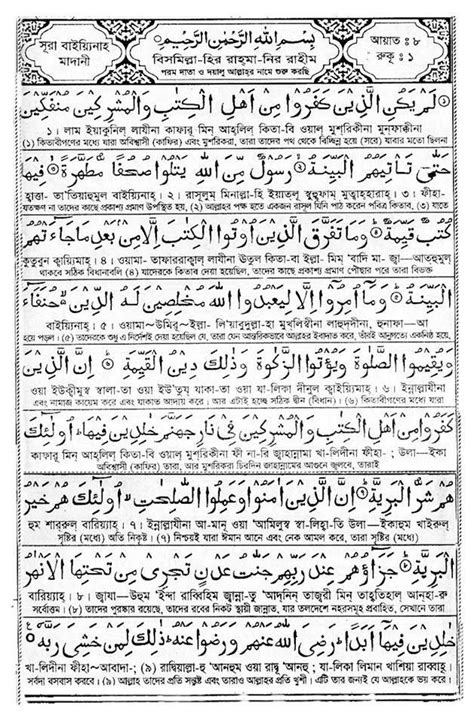 সূরা বাইয়্যিনাহ
মাদানী
بِسْمِ اللهِ الرَّحْمٰنِ الرَّحِيْمِ
বিসমিল্লা-হির রাহমা-নির রাহীম
পরম দাতা ও দয়ালু আল্লাহর নামে শুরু করছি
আয়াত : ৮
রুকু : ১
لَمْ يَكُنِ الَّذِيْنَ كَفَرُوْا مِنْ اَهْلِ الْكِتٰبِ وَالْمُشْرِكِيْنَ مُنْفَكِّيْنَ
১। লাম ইয়াকুনিল্ লাযীনা কাফারূ মিন্ আহ্‌লিল্ কিতা-বি ওয়াল্ মুশ্‌রিকীনা মুন্‌ফাক্কীনা
(১) কিতাবীগণের মধ্যে যারা অবিশ্বাসী (কাফির) এবং মুশরিকরা, তারা তাদের পথ থেকে বিচ্ছিন্ন হয়ে (সরে) যাবার মতো ছিলনা
حَتّٰى تَاْتِيَهُمُ الْبَيِّنَةُ ۝ رَسُوْلٌ مِّنَ اللهِ يَتْلُوْا صُحُفًا مُّطَهَّرَةً ۝ فِيْهَا
হাত্তা- তা'তিয়াহুমুল বাইয়্যিনাহ্। ২। রাসূলুম্ মিনাল্লা-হি ইয়াত্‌লূ সুহুফাম্ মুত্বাহ্‌হারাহ্। ৩। ফীহা-
যতক্ষণ না তাদের কাছে প্রকাশ্য প্রমাণ উপস্থিত হয়, (২) আল্লাহর পক্ষ হতে একজন রাসূল যিনি পাঠ করেন পবিত্র কিতাব, (৩) যাতে
كُتُبٌ قَيِّمَةٌ ۝ وَمَا تَفَرَّقَ الَّذِيْنَ اُوْتُوا الْكِتٰبَ اِلَّا مِنْ بَعْدِ مَا جَآءَتْهُمُ
কুতুবুন্ ক্বাইয়্যিমাহ্। ৪। ওয়ামা- তাফাররাক্বাল্ লাযীনা ঊতুল কিতা-বা ইল্লা- মিম্ 'বাদি মা- জ্বা—আত্‌হুমুল্
থাকবে সঠিক বিধানাবলি (৪) যাদেরকে কিতাব দেয়া হয়েছিল, তাদের কাছে প্রকাশ্য প্রমাণ পৌছার পরে তারা বিভক্ত
الْبَيِّنَةُ ۝ وَمَآ اُمِرُوْٓا اِلَّا لِيَعْبُدُوا اللهَ مُخْلِصِيْنَ لَهُ الدِّيْنَ حُنَفَآءَ
বাইয়্যিনাহ্। ৫। ওয়ামা~উমিরূ~ইল্লা- লি'ইয়াবুদুল্লা-হা মুখ্‌লিস্বীনা লাহুদ্দীনা, হুনাফা—আ
হয়ে পড়ল। (৫) তাদেরকে শুধু এ নির্দেশই দেয়া হয়েছিল যে, তারা যেন আন্তরিকভাবে আল্লাহর ইবাদাত করে, তাঁরই আনুগত্যে একনিষ্ঠ হয়ে,
وَيُقِيْمُوا الصَّلٰوةَ وَيُؤْتُوا الزَّكٰوةَ وَذٰلِكَ دِيْنُ الْقَيِّمَةِ ۝ اِنَّ الَّذِيْنَ
ওয়া ইউক্বীমুস্ব স্বালা-তা ওয়া ইউ'তুয্ যাকা-তা ওয়া যা-লিকা দীনুল্ ক্বাইয়্যিমাহ্। ৬। ইন্নাল্লাযীনা
এবং নামাজ কায়েম করে এবং যাকাত আদায় করে। আর এটাই হচ্ছে সঠিক দ্বীন (বিধান)। (৬) কিতাবীগণের মধ্যে যারা
كَفَرُوْا مِنْ اَهْلِ الْكِتٰبِ وَالْمُشْرِكِيْنَ فِيْ نَارِ جَهَنَّمَ خٰلِدِيْنَ فِيْهَا ؕ اُولٰٓئِكَ
কাফারূ মিন্ আহ্‌লিল্ কিতা-বি ওয়াল্ মুশ্‌রিকীনা ফী না-রি জ্বাহান্নামা খা-লিদীনা ফীহা- ; উলা—ইকা
অবিশ্বাসী (কাফির) তারা, আর মুশরিকরা চিরদিন জাহান্নামের আগুনে জ্বলবে, তারাই
هُمْ شَرُّ الْبَرِيَّةِ ۝ اِنَّ الَّذِيْنَ اٰمَنُوْا وَعَمِلُوا الصّٰلِحٰتِ اُولٰٓئِكَ هُمْ خَيْرُ
হুম শার্‌রুল্ বারিয়্যাহ্। ৭। ইন্নাল্লাযীনা আ-মানূ ওয়া 'আমিলুস্ব স্বা-লিহা-তি উলা—ইকাহুম খাইরুল্
সৃষ্টির (মধ্যে) অতি নিকৃষ্ট। (৭) নিশ্চয়ই যারা ঈমান আনে এবং নেক আমল করে, তারা সৃষ্টির (মধ্যে)
الْبَرِيَّةِ ۝ جَزَآؤُهُمْ عِنْدَ رَبِّهِمْ جَنّٰتُ عَدْنٍ تَجْرِيْ مِنْ تَحْتِهَا الْاَنْهٰرُ
বারিয়্যাহ্। ৮। জ্বাযা—উহুম 'ইন্দা রাব্বিহিম্ জ্বান্না-তু 'আদ্‌নিন্ তাজ্বরী মিন্ তাহ্‌তিহাল্ আন্‌হা-রু
সর্বোত্তম। (৮) তাদের পুরস্কার রয়েছে, তাদের রবের নিকট স্থায়ী জান্নাত, যার তলদেশে নহরসমূহ প্রবাহিত, সেখানে তারা
خٰلِدِيْنَ فِيْهَآ اَبَدًا ؕ رَضِيَ اللهُ عَنْهُمْ وَرَضُوْا عَنْهُ ؕ ذٰلِكَ لِمَنْ خَشِيَ رَبَّهٗ
খা-লিদীনা ফীহা~আবাদা-; (৯) রাদ্বিয়াল্লা-হু 'আন্‌হুম ওয়া রাদ্বূ 'আন্‌হু ; যা-লিকা লিমান খাশিয়া রাব্বাহূ।
সর্বদা বসবাস করবে। (৯) আল্লাহ তাদের প্রতি সন্তুষ্ট এবং তারাও আল্লাহর প্রতি খুশী। এটি তার জন্যই যে আল্লাহকে ভয় করে।